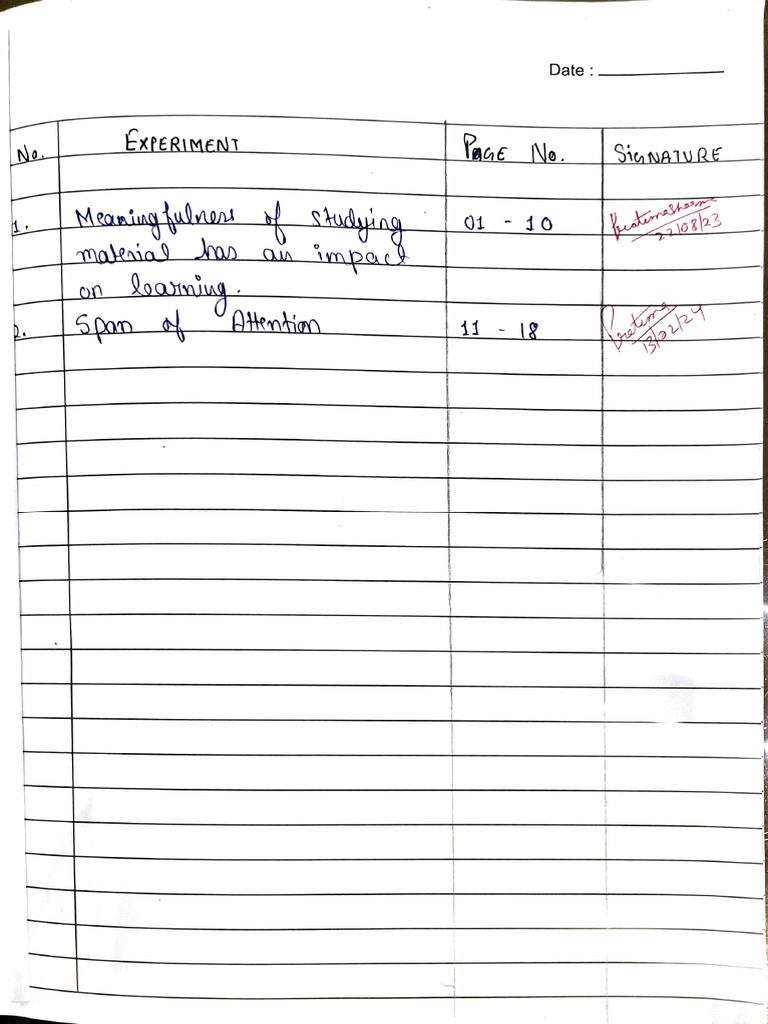 Date :
No. EXPERIMENT PAGE No. SIGNATURE
1. Meaningfulness of studying 01 - 10
material has an impact 22/08/23
on learning.
2. Span of Attention 11 - 18 Pratima
13/02/24